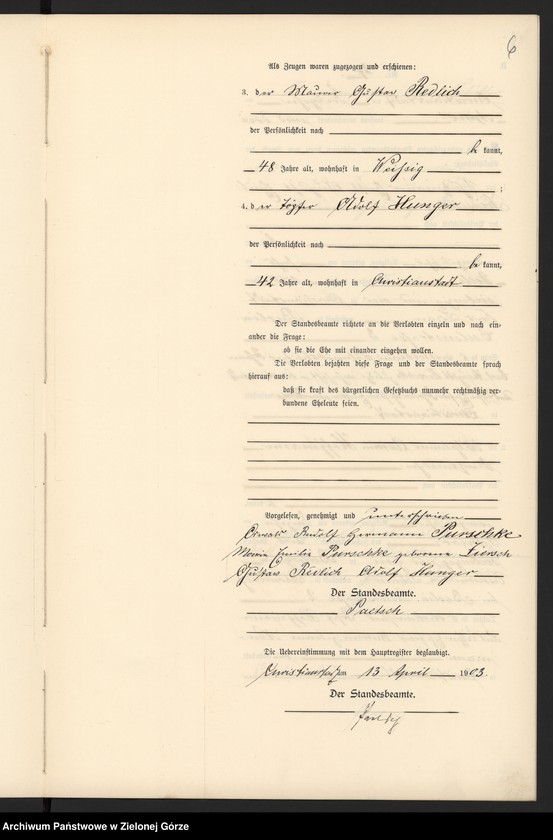 6
Als Zeugen waren zugezogen und erschienen:
3. der Maurer Gustav Redlich
der Persönlichkeit nach
be kannt,
48 Jahre alt, wohnhaft in Weißig
;
4. der Töpfer Adolf Hunger
der Persönlichkeit nach
be kannt,
42 Jahre alt, wohnhaft in Christianstadt
Der Standesbeamte richtete an die Verlobten einzeln und nach ein-
ander die Frage:
ob sie die Ehe mit einander eingehen wollen.
Die Verlobten bejahten diese Frage und der Standesbeamte sprach
hierauf aus:
daß sie kraft des bürgerlichen Gesetzbuchs nunmehr rechtmäßig ver-
bundene Eheleute seien.
Vorgelesen, genehmigt und unterschrieben
Rudolf Hermann Purschke
Maria Emilie Purschke geborene Ziersch
Gustav Redlich Adolf Hunger
Der Standesbeamte.
Paetsch
Die Uebereinstimmung mit dem Hauptregister beglaubigt.
Christianstadt, am 13 April 1903.
Der Standesbeamte.
Paetsch
Archiwum Państwowe w Zielonej Górze